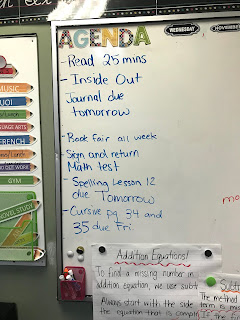 AGENDA
WEDNESDAY
NOVEMBER
- Read 25 mins
- Inside Out
Journal due
tomorrow
- Book fair all week
- Sign and return
Math test
- Spelling Lesson 12
due Tomorrow
- Cursive pg. 34 and
35 due Fri.
MUSIC
LANGUAGE ARTS
FRENCH
GYM
Addition Equations!
To find a missing number in
addition equation, we use subt
Always start with the side
the equation that is comp
The method
term is mi